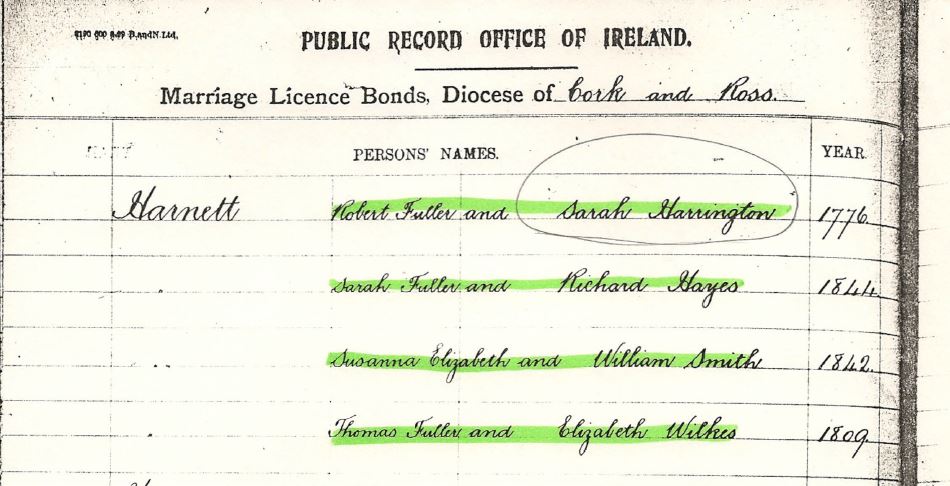 PUBLIC RECORD OFFICE OF IRELAND.
Marriage Licence Bonds, Diocese of Cork and Ross.
PERSONS' NAMES. YEAR.
Harnett Robert Fuller and Sarah Harrington 1776.
" Sarah Fuller and Richard Hayes 1844.
" Susanna Elizabeth and William Smith 1842.
" Thomas Fuller and Elizabeth Wilkes 1809.